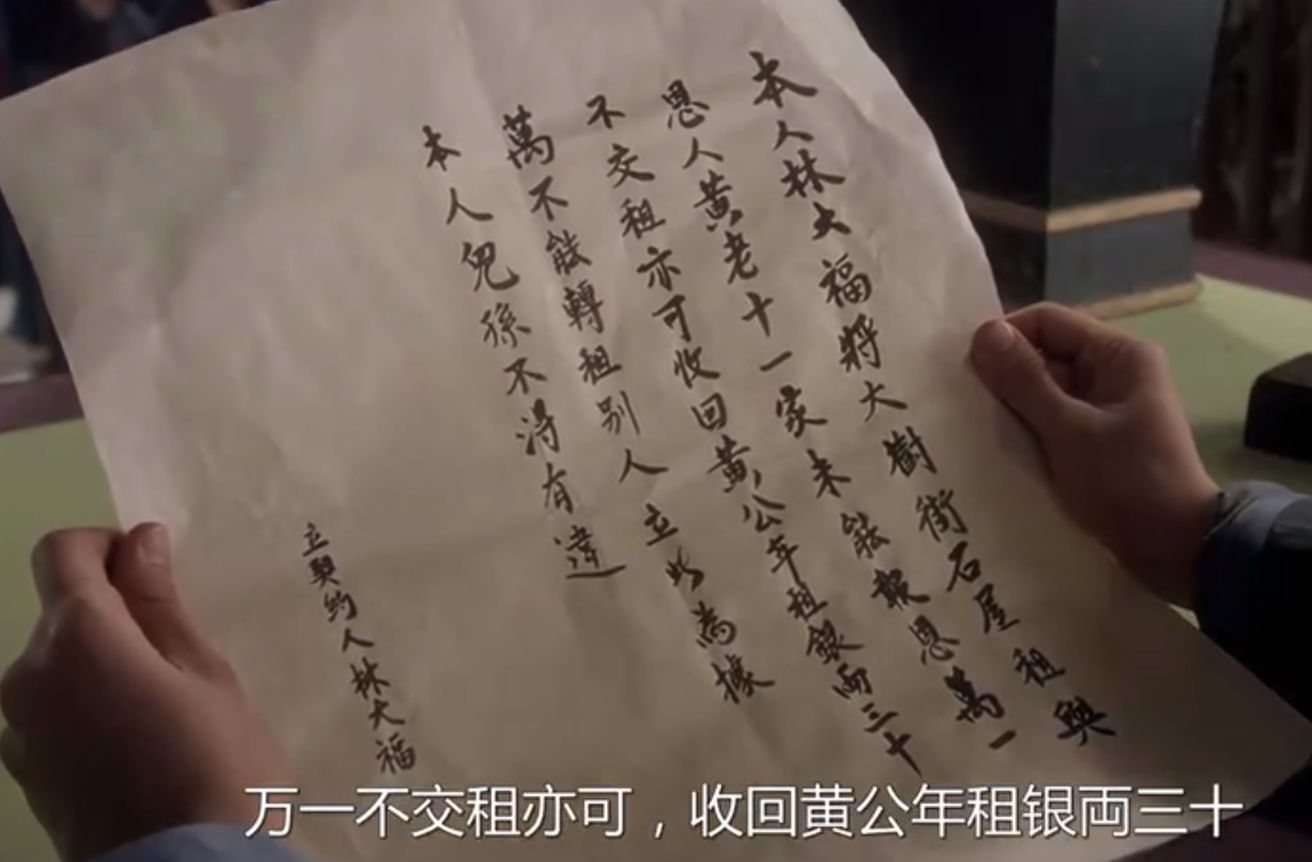 本人林大福將大樹街石屋租與
恩人黃老十一家未能報恩萬一
不交租亦可收回黃公年租銀両三十
萬不能轉租别人立此為據
本人兒孫不得有違
立契約人林大福
万一不交租亦可，收回黄公年租银両三十